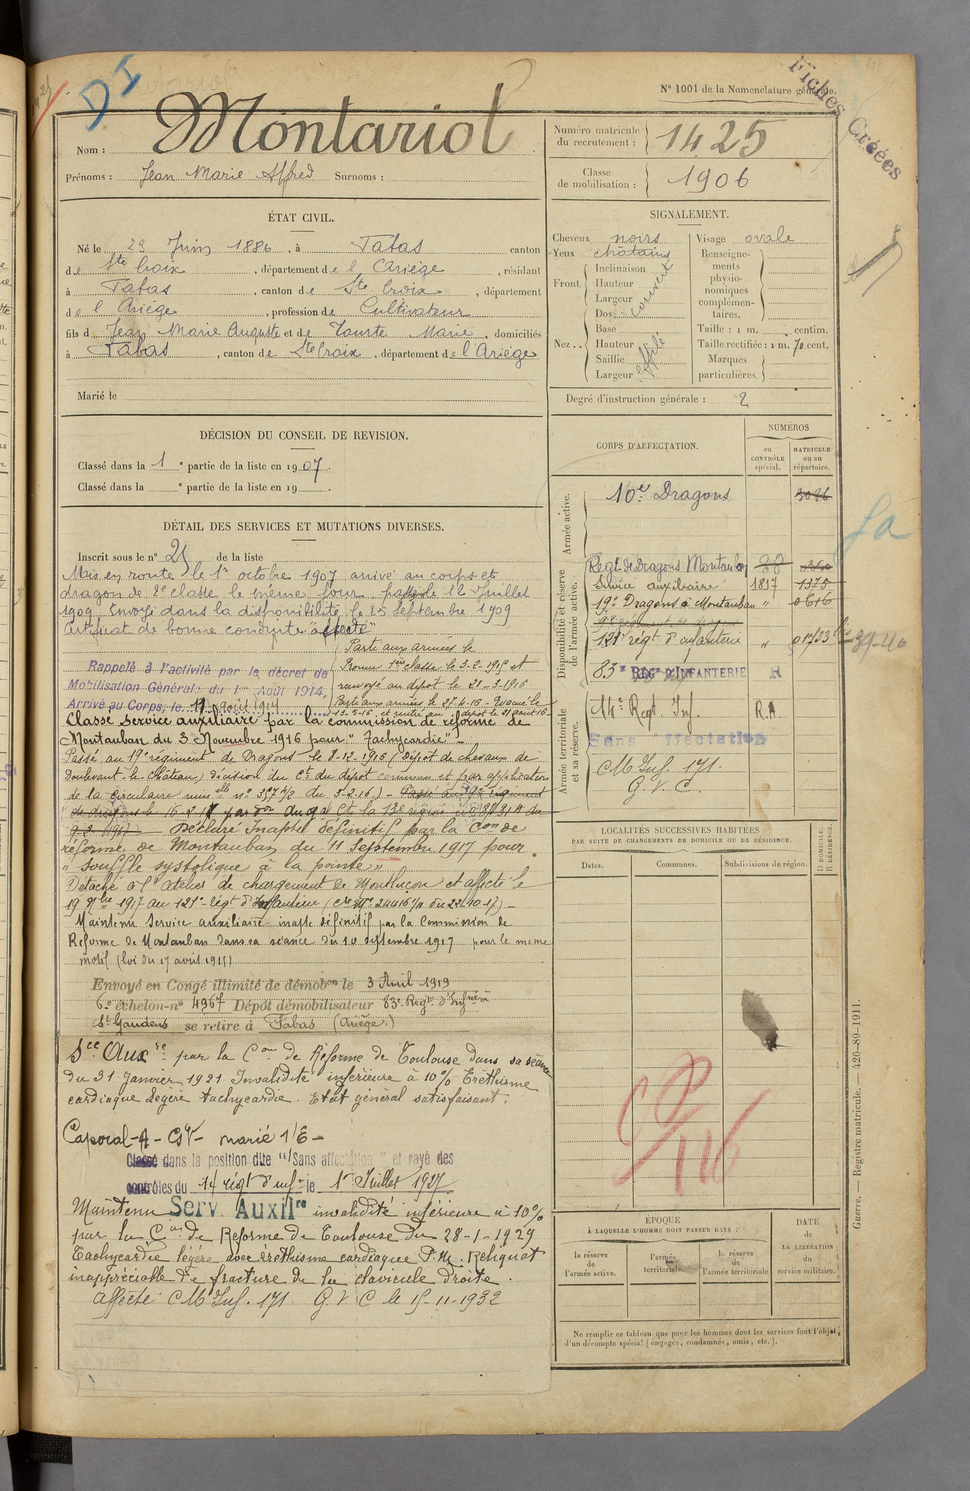 DI
Fiches Créées
N° 1001 de la Nomenclature générale.
Nom : Montariol
Prénoms : Jean Marie Alfred Surnoms :
Numéro matricule du recrutement : 1425
Classe de mobilisation : 1906
ÉTAT CIVIL.
Né le 29 Juin 1886, à Fabas canton
de Ste Croix, département de l'Ariège, résidant
à Fabas, canton de Ste Croix, département
de l'Ariège, profession de Cultivateur
fils de Jean Marie Auguste et de Marie, domiciliés
à Fabas, canton de Ste Croix, département de l'Ariège
Marié le
SIGNALEMENT.
Cheveux noirs
Yeux châtains
Front. Inclinaison
Hauteur
Largeur
Nez.. Dos
Base
Hauteur
Saillie
Largeur
Visage ovale
Renseignements physionomiques complémentaires.
Taille : 1 m. centim.
Taille rectifiée : 1 m. 70 cent.
Marques particulières.
Degré d'instruction générale : 2
DÉCISION DU CONSEIL DE REVISION.
Classé dans la 1e partie de la liste en 1907.
Classé dans la e partie de la liste en 19
DÉTAIL DES SERVICES ET MUTATIONS DIVERSES.
Inscrit sous le n° 21 de la liste
Mis en route le 1er octobre 1907 arrivé au corps et
dragon de 2e classe le même jour. passé le 12 Juillet
1909. Envoyé dans la disponibilité le 25 septembre 1909
Certificat de bonne conduite "accordé"
Rappelé à l'activité par le décret de
Mobilisation Générale du 1er Août 1914.
Arrivé au Corps, le 11 août 1914
Parti aux armées le
Promu 1ère classe le 3-2-1915 et
renvoyé au dépôt le 21-3-1916
Parti aux armées le 27-4-16 - Evacué le
13-5-16 et rentré au dépôt le 21 août 16
Classé service auxiliaire par la commission de réforme de
Montauban du 3 Novembre 1916 pour "Tachycardie" -
Passé au 19e régiment de Dragons le 8-12-1916 (Dépôt de chevaux de
Doulevant-le-Château) Décision du Ct du dépôt commun et par application
de la circulaire mins elle n° 357 1/2 du 3-2-16) - Passé au 9e régiment
de dragons le 16-2-17 par don du gal Ct la 13e région
9-2-1917 - Déclaré Inapte définitif par la Con de
réforme de Montauban du 11 Septembre 1917 pour
"souffle systolique à la pointe"
Détaché à l'atelier de chargement de Montluçon et affecté le
19 9bre 1917 au 121e régt d'Infanterie (Cre Mle 24416 1/11 du 22-10-17) -
Maintenu Service auxiliaire inapte définitif par la Commission de
Réforme de Montauban dans sa séance du 10 septembre 1917 pour le même
motif (loi du 17 avril 1915)
Envoyé en Congé illimité de démobon le 3 Avril 1919
6e échelon-n° 4967 Dépôt démobilisateur 83e Régt d'Infrie à
St Gaudens se retire à Fabas (Ariège.)
Sce Auxre par la Con de Réforme de Toulouse dans sa séance
du 31 Janvier 1921 Invalidité inférieure à 10% Eréthisme
cardiaque Légère tachycardie. Etat général satisfaisant.
Caporal-A- marié 1/E -
Classé dans la position dite "Sans affectation" et rayé des
contrôles du 14 régt d'infie le 1er Juillet 1927
Maintenu Serv. Auxilre invalidité inférieure à 10%
par la Con de Réforme de Toulouse du 28-1-1929
Tachycardie légère avec éréthisme cardiaque P.M. Reliquat
inappréciable de fracture de la clavicule droite.
Affecté CM Inf. 171. G.V.C le 15-11-1932
CORPS D'AFFECTATION.
NUMÉROS
au CONTRÔLE spécial.
MATRICULE ou au répertoire.
Armée active.
10e Dragons 3086
Disponibilité et réserve de l'armée active.
Regt de Dragons Montauban
Service auxiliaire 1817 1375
19e Dragons à Montauban " 0616
121e régt d'infanterie " 01733
39-40
83e REGt D'INFANTERIE R
Armée territoriale et sa réserve.
14e Regt. Inf. R.A.
Sans affectation
CM Inf. 171.
G.V.C.
LOCALITÉS SUCCESSIVES HABITÉES
PAR SUITE DE CHANGEMENTS DE DOMICILE OU DE RÉSIDENCE.
Dates. Communes. Subdivisions de région.
D DOMICILE. R RÉSIDENCE.
CP
116
ÉPOQUE
À LAQUELLE L'HOMME DOIT PASSER DANS :
la réserve de l'armée active.
l'armée territoriale.
la réserve de l'armée territoriale
DATE DE LA LIBÉRATION du service militaire.
Ne remplir ce tableau que pour les hommes dont les services font l'objet
d'un décompte spécial (engagés, condamnés, omis, etc.).
Guerre. — Registre matricule. — 426-89-1911.